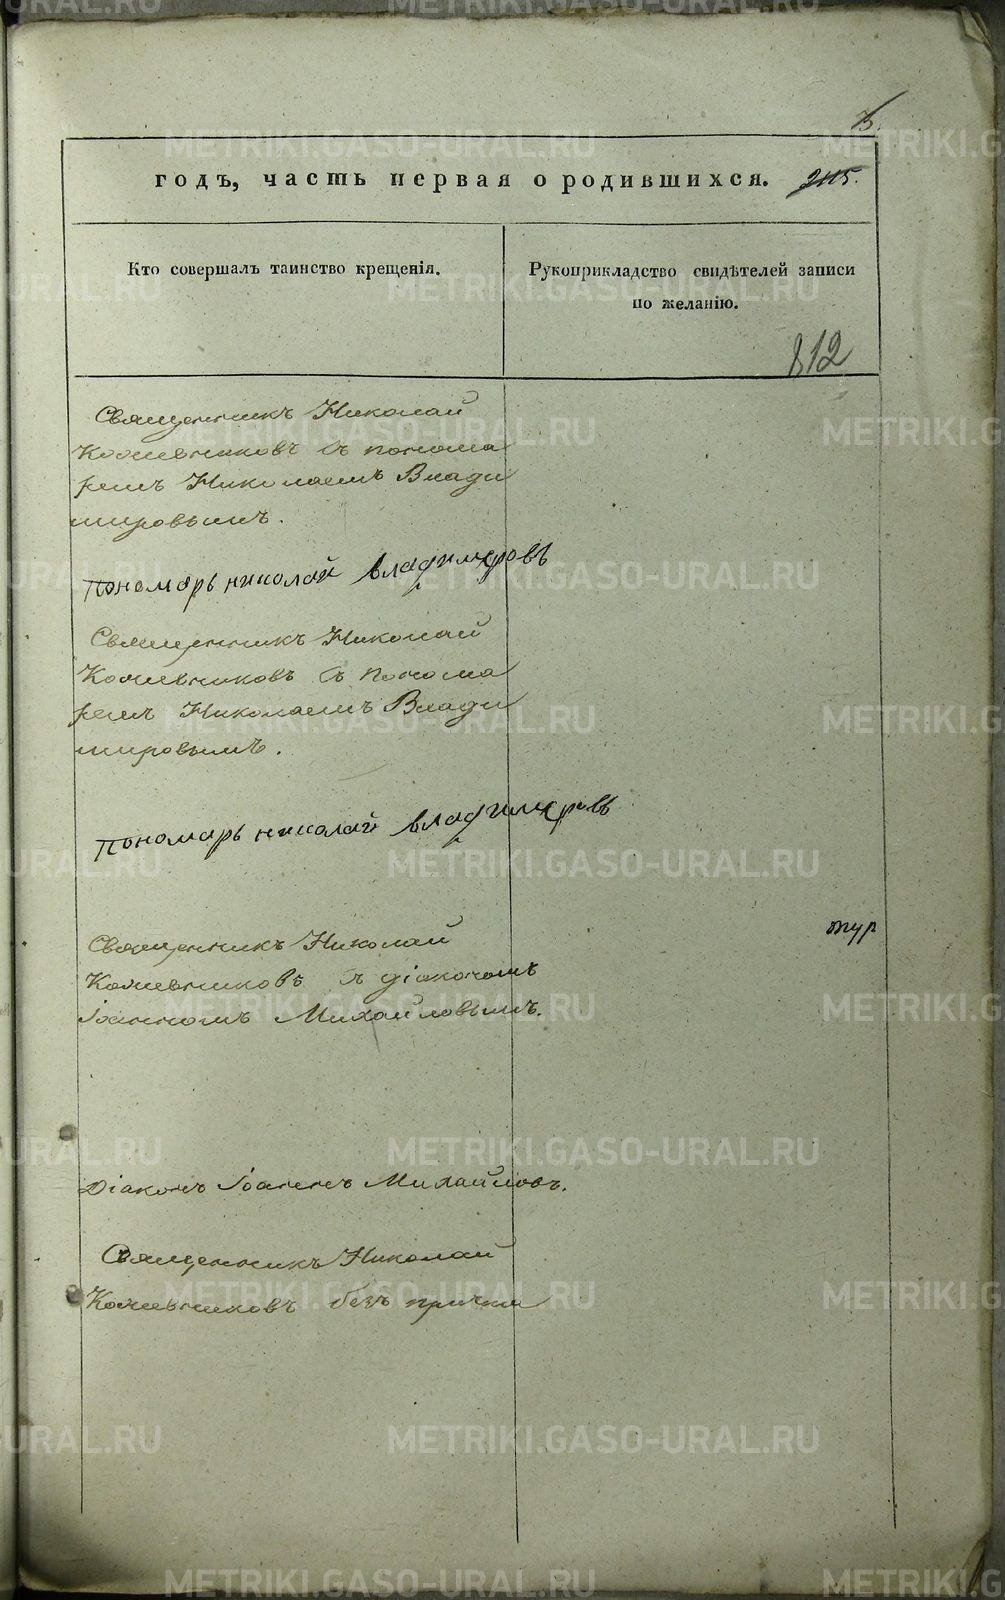 годъ, часть первая о родившихся.
Кто совершалъ таинство крещенія.
Рукоприкладство свидѣтелей записи
по желанію.
812
Священникъ Николай
Кожевниковъ съ понома
ремъ Николаемъ Влади
мировымъ.
Пономарь николай владимировъ
Священникъ Николай
Кожевниковъ съ понома
ремъ Николаемъ Влади
мировымъ.
Пономарь николай владимировъ
Священникъ Николай
Кожевниковъ съ діакономъ
Іоанномъ Михайловымъ.
Діаконъ Іоаннъ Михайловъ.
Священникъ Николай
Кожевниковъ безъ причта
METRIKI.GASO-URAL.RU